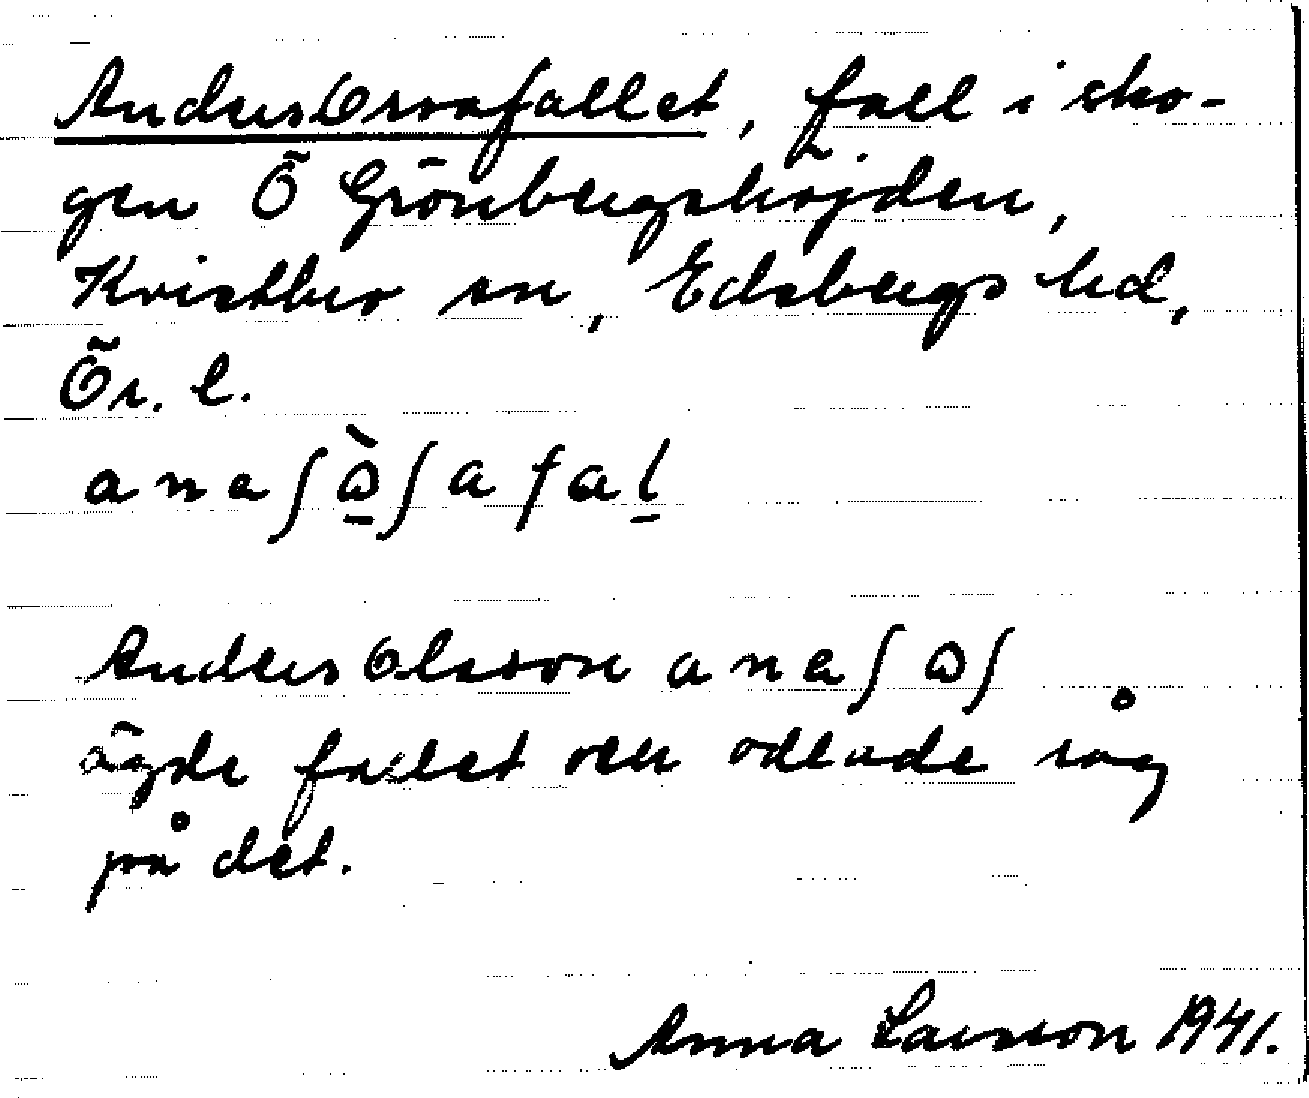 Anders Orsafallet, fall i sko-
gen Ö Grönbergshöjden,
Kvistbro sn, Edsbergs hd,
Ör. l.
anaʃɷ̀ʃafal
Anders Olsson anaʃɷʃ
ägde fallet och odlade råg
på det.
Anna Larsson 1941.